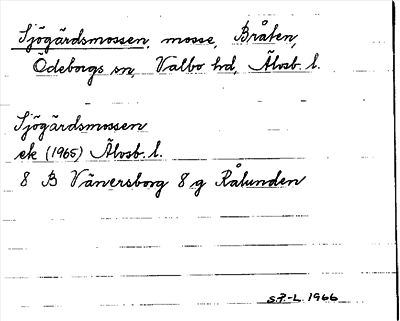 Sjögärdsmossen, mosse, Bråten,
Ödeborgs sn, Valbo hd, Älvsb. l.
Sjögärdsmossen
ek (1965) Älvsb. l.
8 B Vänersborg 8 g Rålunden
S.P.-L. 1966